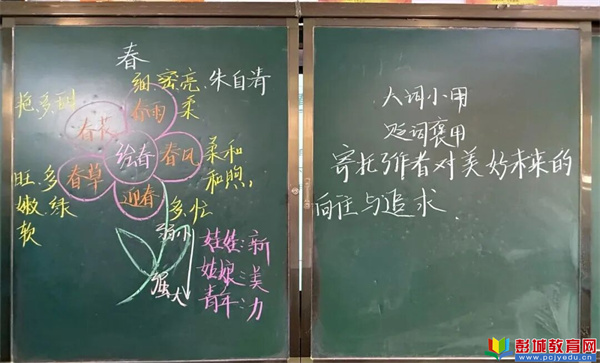 春
细、密、亮、柔
朱自清
艳、多、甜
春花
春雨
绘春
春风
柔和
和煦
旺、多
嫩、绿
软
春草
迎春
多、忙
弱小
强大
娃娃:新
姑娘:美
青年:力
大词小用
贬词褒用
寄托了作者对美好未来的
向往与追求.
彭城教育网
www.pcjyedu.cn